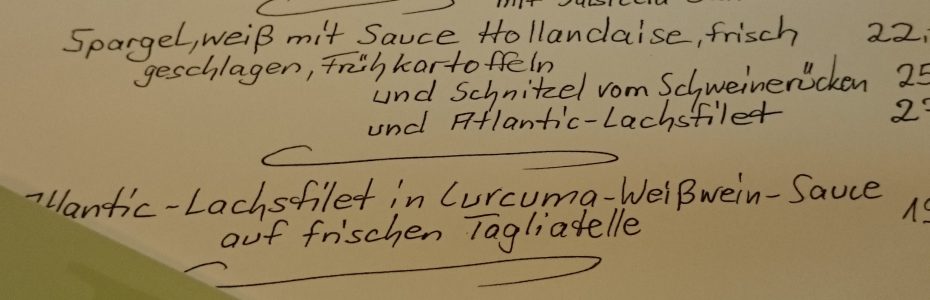 mit
Spargel, weiß mit Sauce Hollandaise, frisch 22,
geschlagen, Frühkartoffeln
und Schnitzel vom Schweinerücken 25
und Atlantic-Lachsfilet 2
Atlantic-Lachsfilet in Curcuma-Weißwein-Sauce
auf frischen Tagliatelle 19